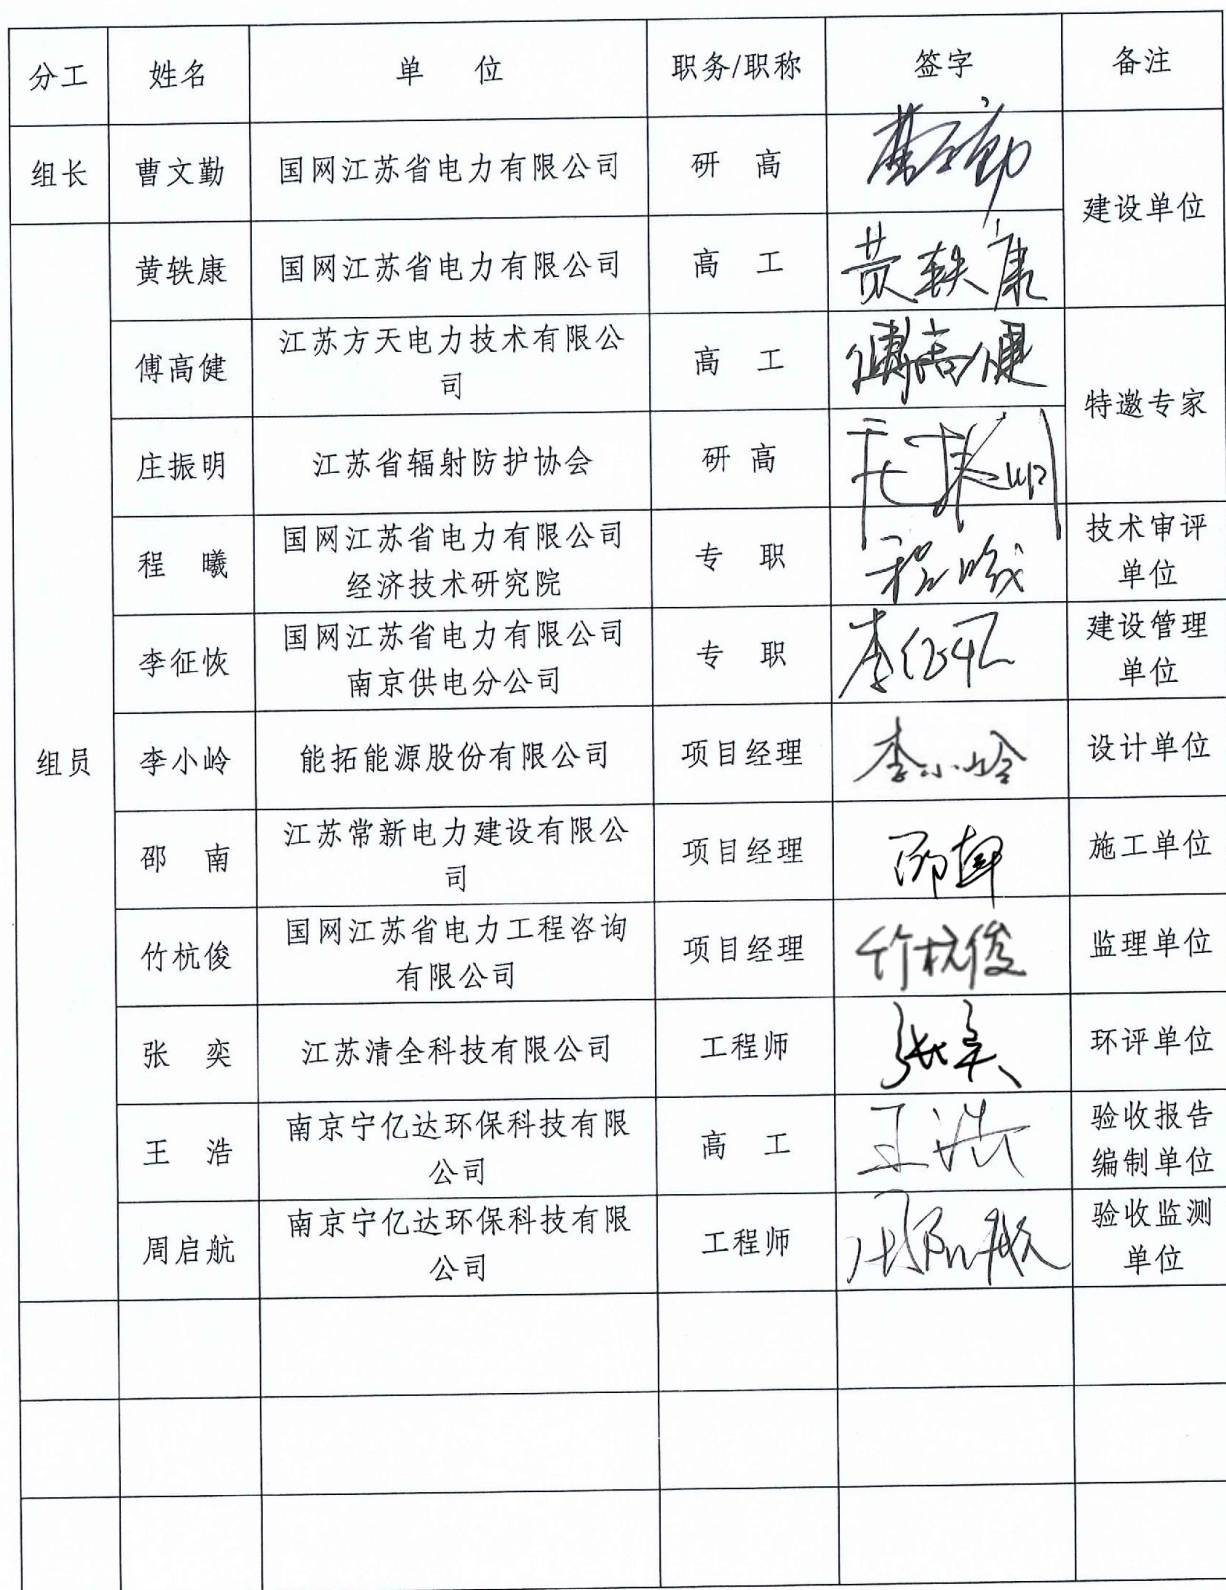 分工 姓名 单 位 职务/职称 签字 备注
组长 曹文勤 国网江苏省电力有限公司 研 高 曹文勤 建设单位
组员 黄轶康 国网江苏省电力有限公司 高 工 黄轶康
傅高健 江苏方天电力技术有限公
司 高 工 傅高健 特邀专家
庄振明 江苏省辐射防护协会 研 高 庄振明
程 曦 国网江苏省电力有限公司
经济技术研究院 专 职 程曦 技术审评
单位
李征恢 国网江苏省电力有限公司
南京供电分公司 专 职 李征恢 建设管理
单位
李小岭 能拓能源股份有限公司 项目经理 李小岭 设计单位
邵 南 江苏常新电力建设有限公
司 项目经理 邵南 施工单位
竹杭俊 国网江苏省电力工程咨询
有限公司 项目经理 竹杭俊 监理单位
张 奕 江苏清全科技有限公司 工程师 张奕 环评单位
王 浩 南京宁亿达环保科技有限
公司 高 工 王浩 验收报告
编制单位
周启航 南京宁亿达环保科技有限
公司 工程师 周启航 验收监测
单位